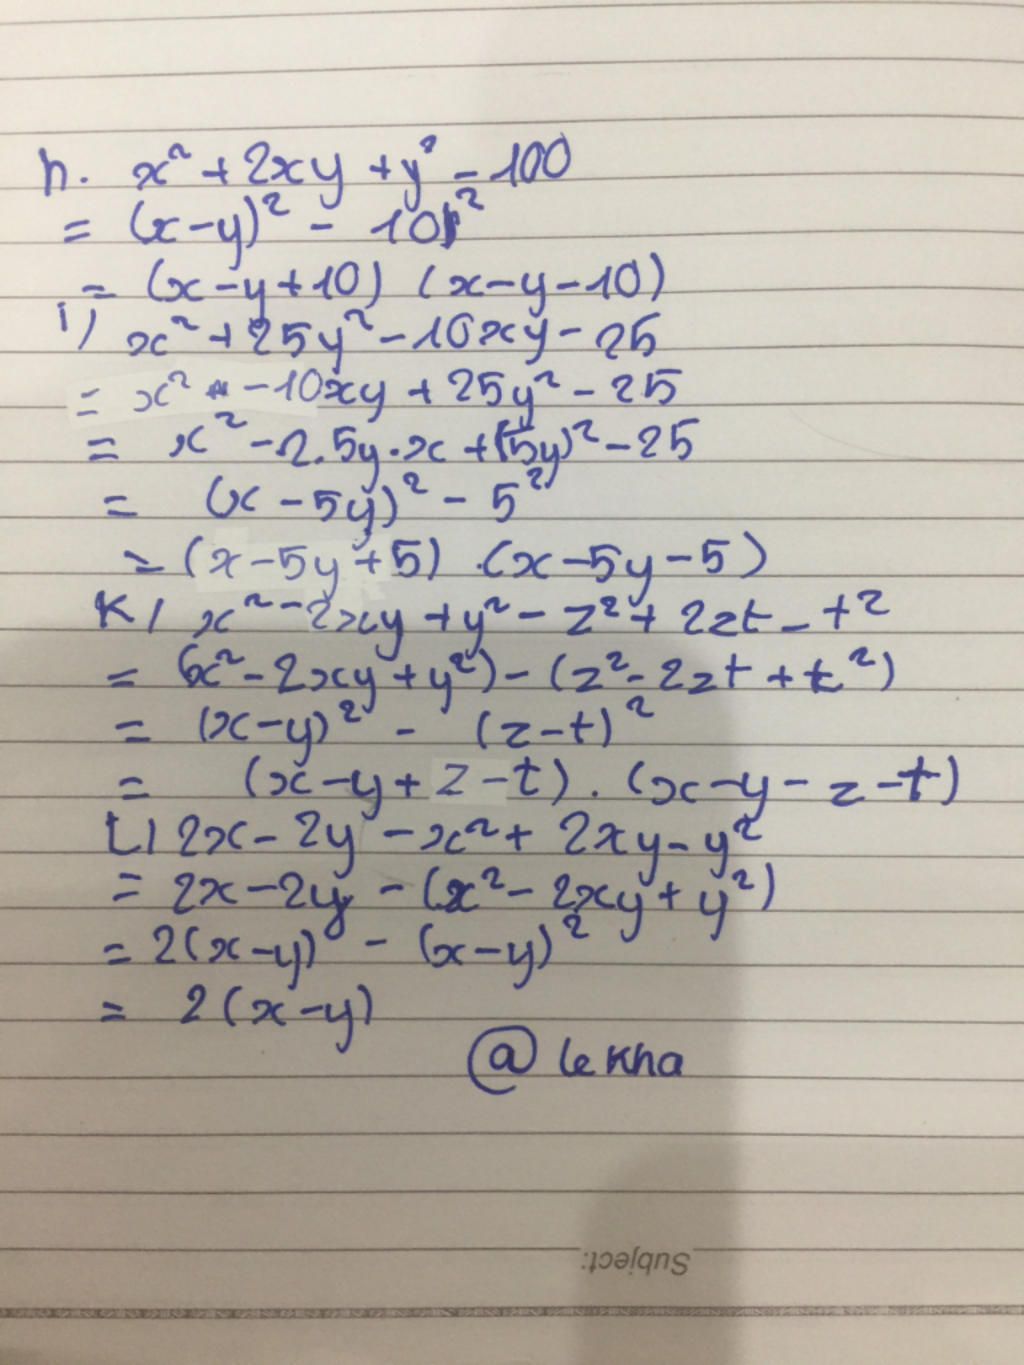 h. x² + 2xy + y² - 100
= (x - y)² - 10²
= (x - y + 10) (x - y - 10)
i) x² + 25y² - 10xy - 25
= x² - 10xy + 25y² - 25
= x² - 2.5y.x + (5y)² - 25
= (x - 5y)² - 5²
= (x - 5y + 5) . (x - 5y - 5)
K) x² - 2xy + y² - z² + 2zt - t²
= (x² - 2xy + y²) - (z² - 2zt + t²)
= (x - y)² - (z - t)²
= (x - y + z - t) . (x - y - z - t)
L) 2x - 2y - x² + 2xy - y²
= 2x - 2y - (x² - 2xy + y²)
= 2(x - y) - (x - y)²
= 2(x - y)
@ le Kha
Subject: